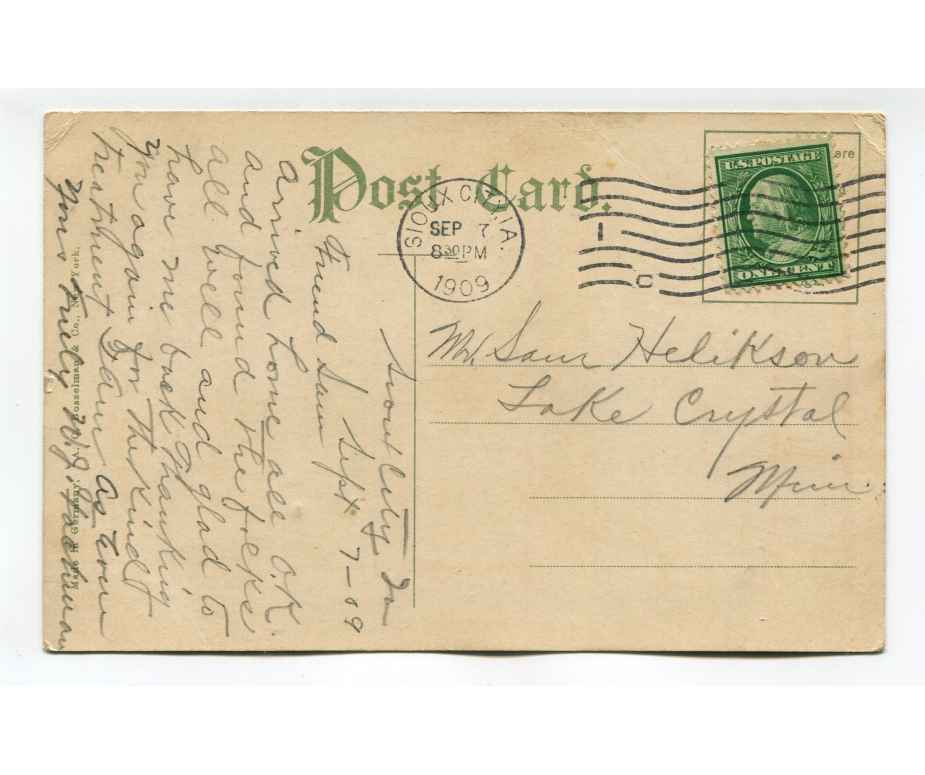 Post Card.
SIOUX CITY, IA.
SEP 7
8 30 PM
1909
U.S. POSTAGE
ONE CENT
Mr. Sam Helikson
Lake Crystal
Minn.
Sioux City Ia
Sept 7-09
Friend Sam
arrived home all O.K.
and found the folks
all well and glad to
have me back Thanking
you again for The kind
treatment I am as Ever
Yours Truly W.J.
Made in Germany,
& Co., New York.